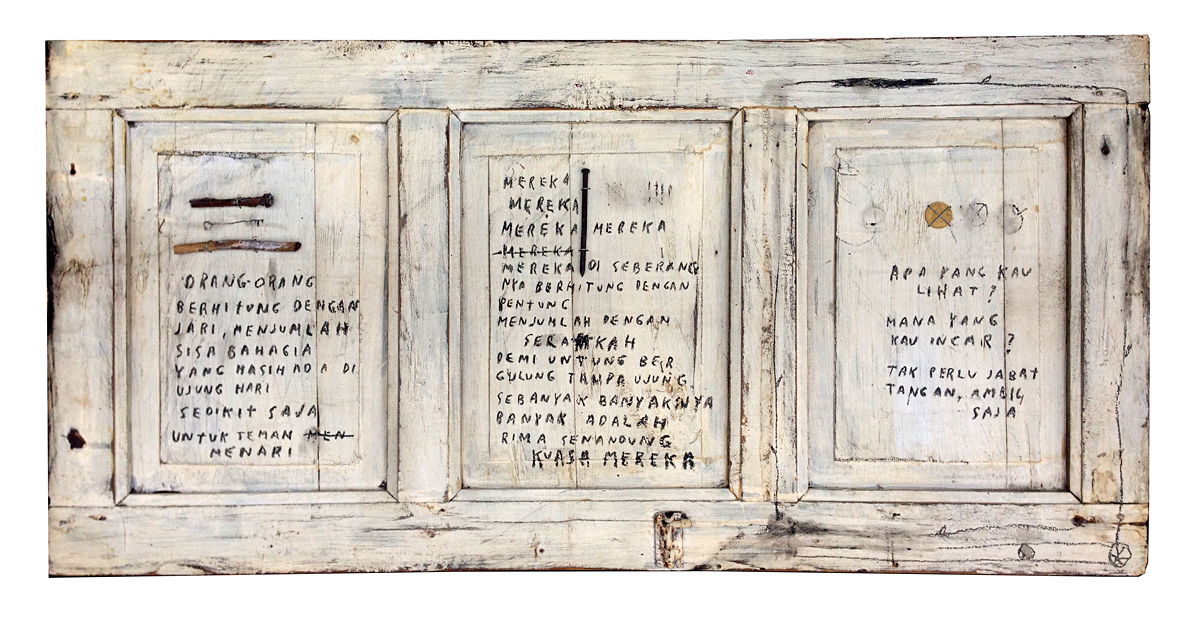 ORANG-ORANG
BERHITUNG DENGAN
JARI, MENJUMLAH
SISA BAHAGIA
YANG MASIH ADA DI
UJUNG HARI
SEDIKIT SAJA
UNTUK TEMAN MEN
MENARI
MEREKA
MEREKA
MEREKA MEREKA
MEREKA
MEREKA DI SEBERANG
NYA BERHITUNG DENGAN
PENTUNG
MENJUMLAH DENGAN
SERAKAH
DEMI UNTUNG BER
GULUNG TAMPA UJUNG
SEBANYAK BANYAKNYA
BANYAK ADALAH
RIMA SENANDUNG
KUASA MEREKA
APA YANG KAU
LIHAT?
MANA YANG
KAU INCAR?
TAK PERLU JABAT
TANGAN, AMBIL
SAJA